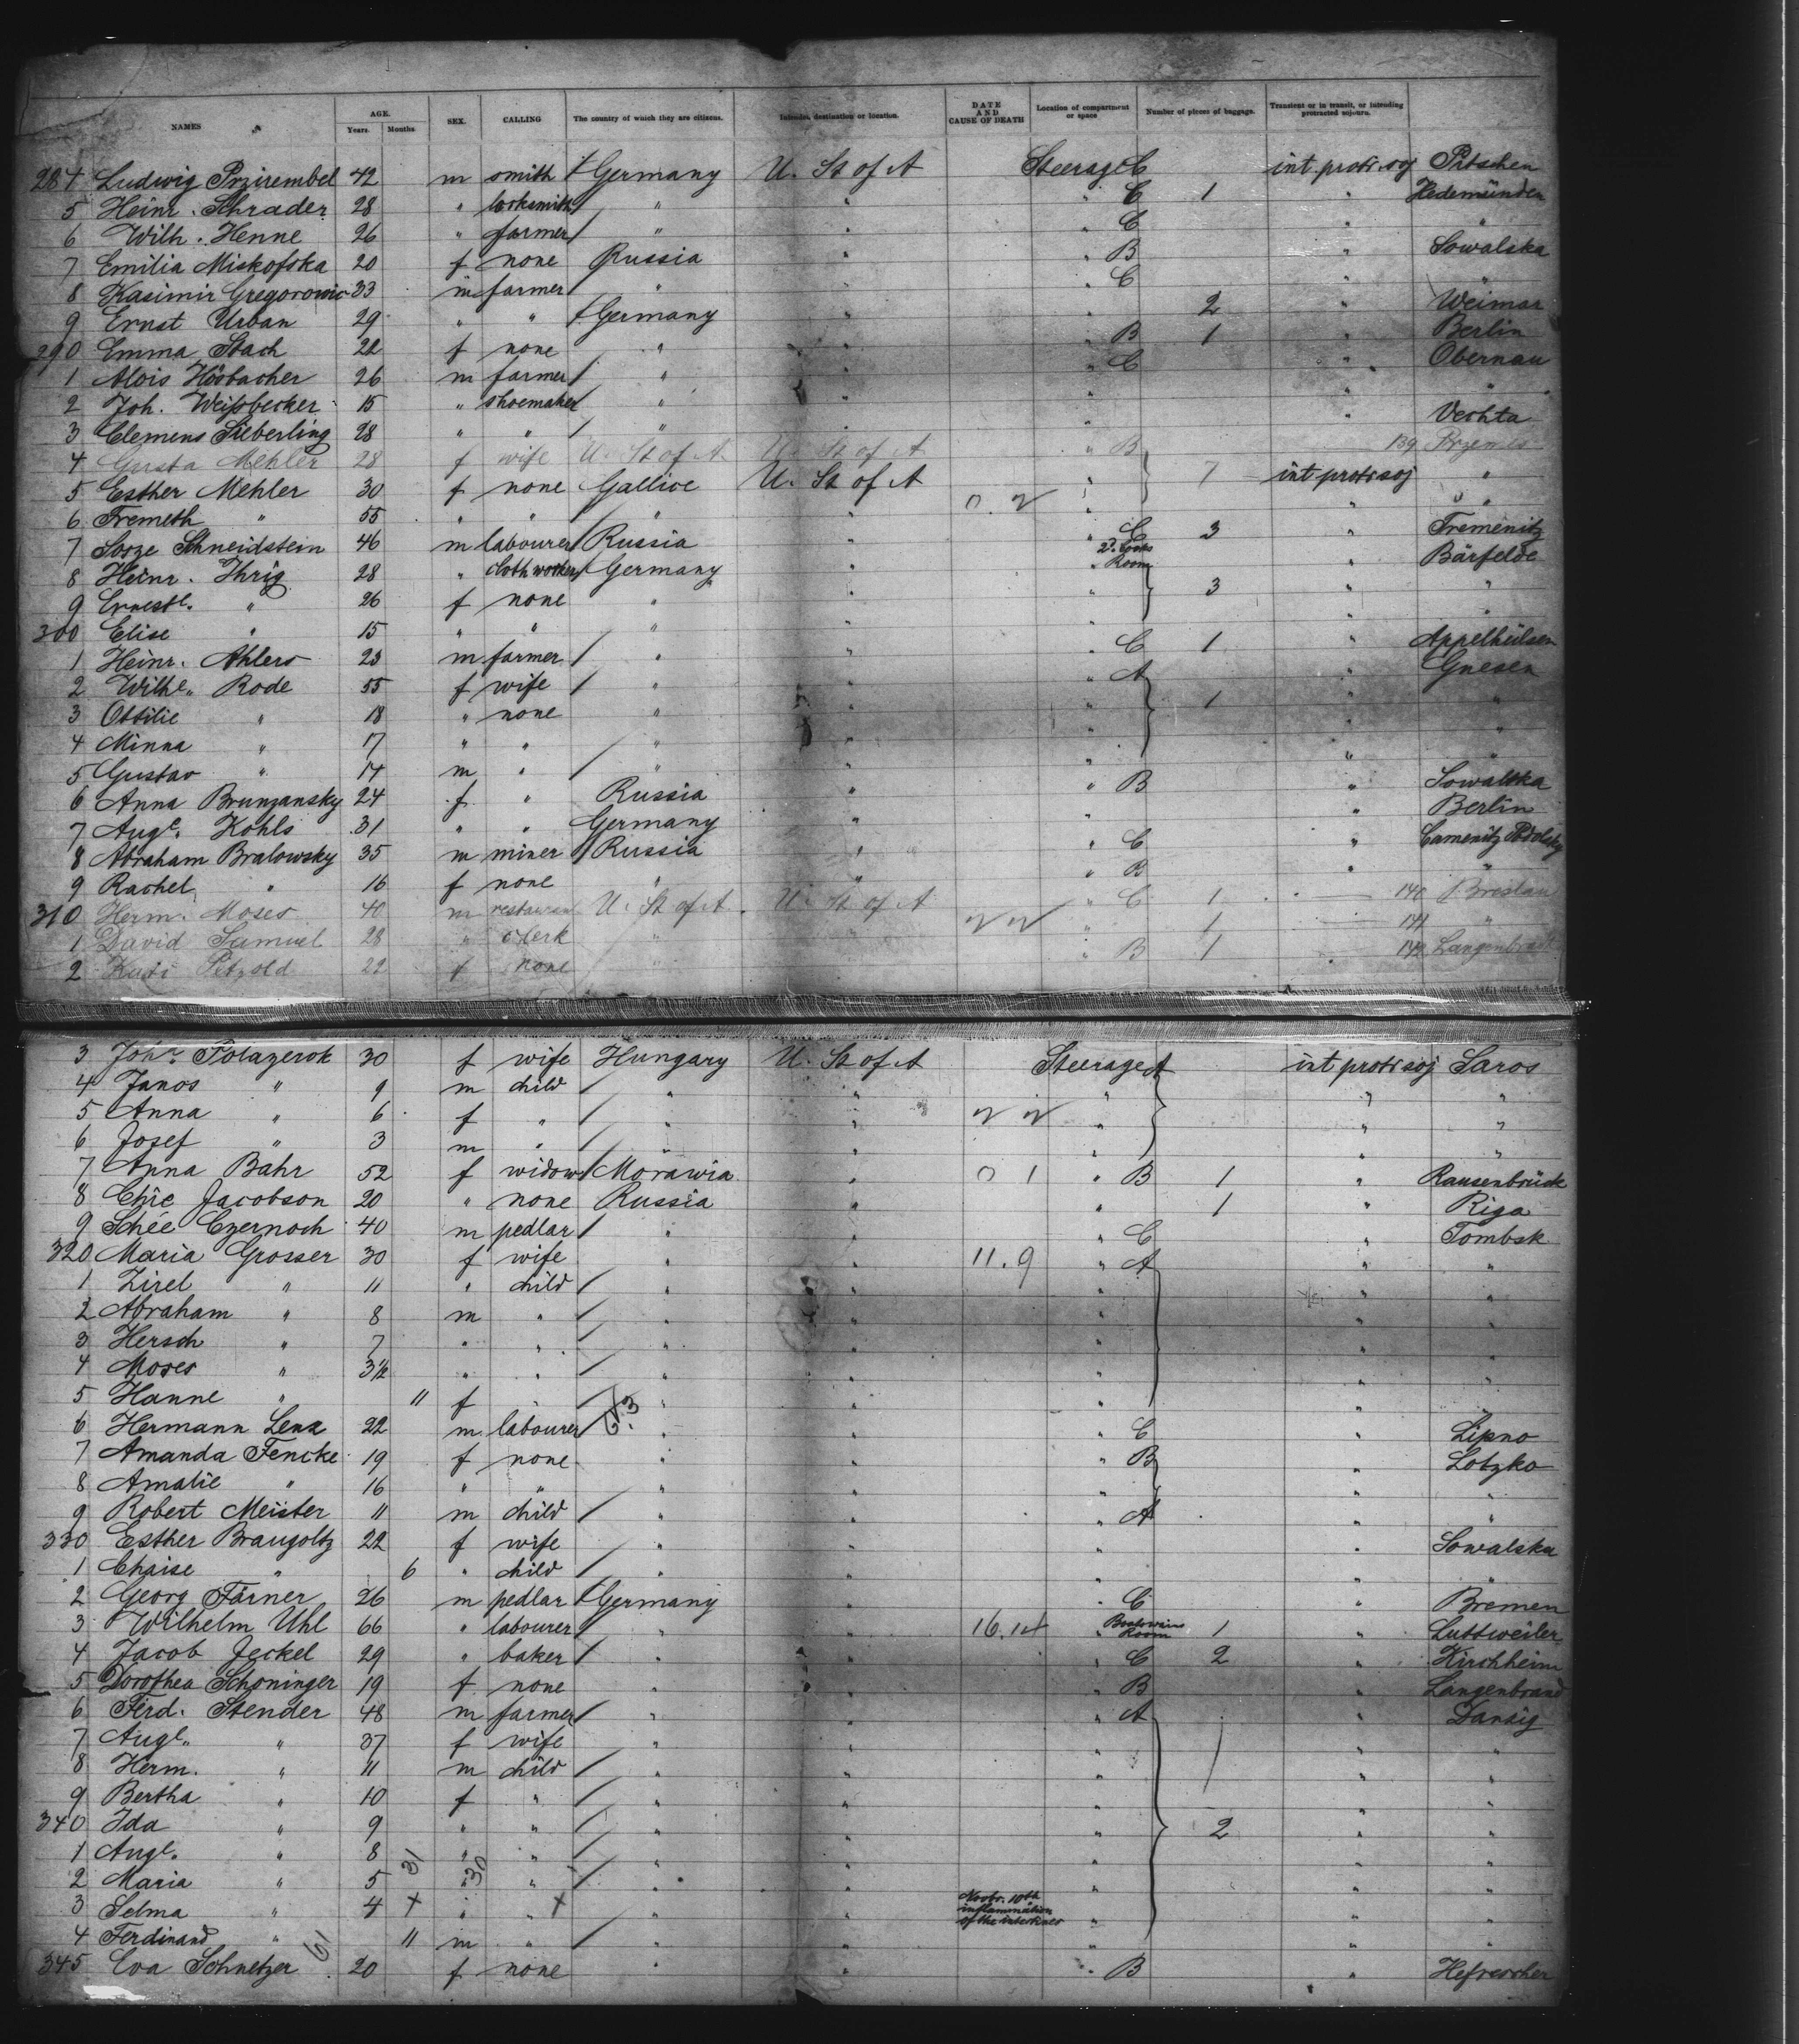 NAMES AGE. Years. Months. SEX. CALLING The country of which they are citizens. Intended destination or location. DATE AND CAUSE OF DEATH Location of compartment or space Number of pieces of baggage. Transient or in transit, or intending protracted sojourn.
284 Ludwig Przirembel 42 m smith Germany U. St of A Steerage C int protr soj Pitschen
5 Heinr. Schrader 28 " locksmith " " " C 1 " Hedemünden
6 Wilh. Henne 26 " farmer " " " C " "
7 Emilia Miskofska 20 f none Russia " " B " Sowalska
8 Kasimir Gregorowic 33 m farmer " " " C " "
9 Ernst Urban 29 " " Germany " " 2 " Weimar
290 Emma Stach 22 f none " " " B 1 " Berlin
1 Alois Hösbacher 26 m farmer " " " C " Obernau
2 Joh. Weißbecker 15 " shoemaker " " " " "
3 Clemens Sieberling 28 " " " " " " Vechta
4 Gusta Mehler 28 f wife U. St of A. U. St of A " B 139
5 Esther Mehler 30 f none Gallice U. St of A " 1 int protr soj "
6 Fremeth " 55 " " " " " " "
7 Sorze Schneidstein 46 m labourer Russia " " C 3 " Tremenitz
8 Heinr. Ihrig 28 " cloth worker Germany " " 2d. Cooks Room " Bärfelde
9 Ernestl. " 26 f none " " " 3 " "
300 Elise " 15 " " " " " " "
1 Heinr. Ahlers 23 m farmer " " " C 1 " Appelhülsen
2 Wilhe. Rode 55 f wife " " " A " Gnesen
3 Ottilie " 18 " none " " " 1 " "
4 Minna " 17 " " " " " " "
5 Gustav " 14 m " " " " " "
6 Anna Brunzansky 24 f " Russia " " B " Sowalska
7 Auge. Kohls 31 " " Germany " " " Berlin
8 Abraham Bralowsky 35 m miner Russia " " C " Camenitz Podolsky
9 Rachel " 16 f none " " " B " "
310 Herm. Moses 40 m restaurant U. St of A. U. St of A " C 1 140 Breslau
1 David Samuel 28 " clerk " " " 1 141 "
2 Kati Petzold 22 f none " " " B 1 142 Langenbrand
3 Johe. Polazerok 30 f wife Hungary U. St of A Steerage A int protr soj Saros
4 Janos " 9 m child " " " " "
5 Anna " 6 f " " " " " "
6 Josef " 3 m " " " " " "
7 Anna Bahr 52 f widow Morawia " 0 1 " B 1 " Rausenbrück
8 Chie Jacobson 20 " none Russia " " 1 " Riga
9 Schée Czernoch 40 m pedlar " " " C " Tombsk
320 Maria Grosser 30 f wife " " 11.9 " A " "
1 Zirel " 11 " child " " " " "
2 Abraham " 8 m " " " " " "
3 Hersch " 7 " " " " " " "
4 Moses " 3½ " " " " " " "
5 Hanne " 11 f " " " " " "
6 Hermann Lenz 22 m labourer " " " C " Lipno
7 Amanda Fencke 19 f none " " " B " Lotzko
8 Amalie " 16 " " " " " " "
9 Robert Meister 11 m child " " " A " "
330 Esther Braugoltz 22 f wife " " " " Sowalska
1 Chaise " 6 " child " " " " "
2 Georg Färner 26 m pedlar Germany " " C " Bremen
3 Wilhelm Uhl 66 " labourer " " 16.14 " Boatswains Room 1 " Luttweiler
4 Jacob Jeckel 29 " baker " " " C 2 " Kirchheim
5 Dorothea Schoninger 19 f none " " " B " Langenbrand
6 Ferd. Stender 48 m farmer " " " A " Danzig
7 Auge. " 37 f wife " " " " "
8 Herm. " 11 m child " " " " "
9 Bertha " 10 f " " " " " "
340 Ida " 9 " " " " " 2 " "
1 Auge. " 8 " " " " " " "
2 Maria " 5 " " " " " " "
3 Selma " 4 " " " " Novbr. 10th inflammation of the intestines " " "
4 Ferdinand " 11 m " " " " " "
345 Eva Schnetzer 20 f none " " " B "